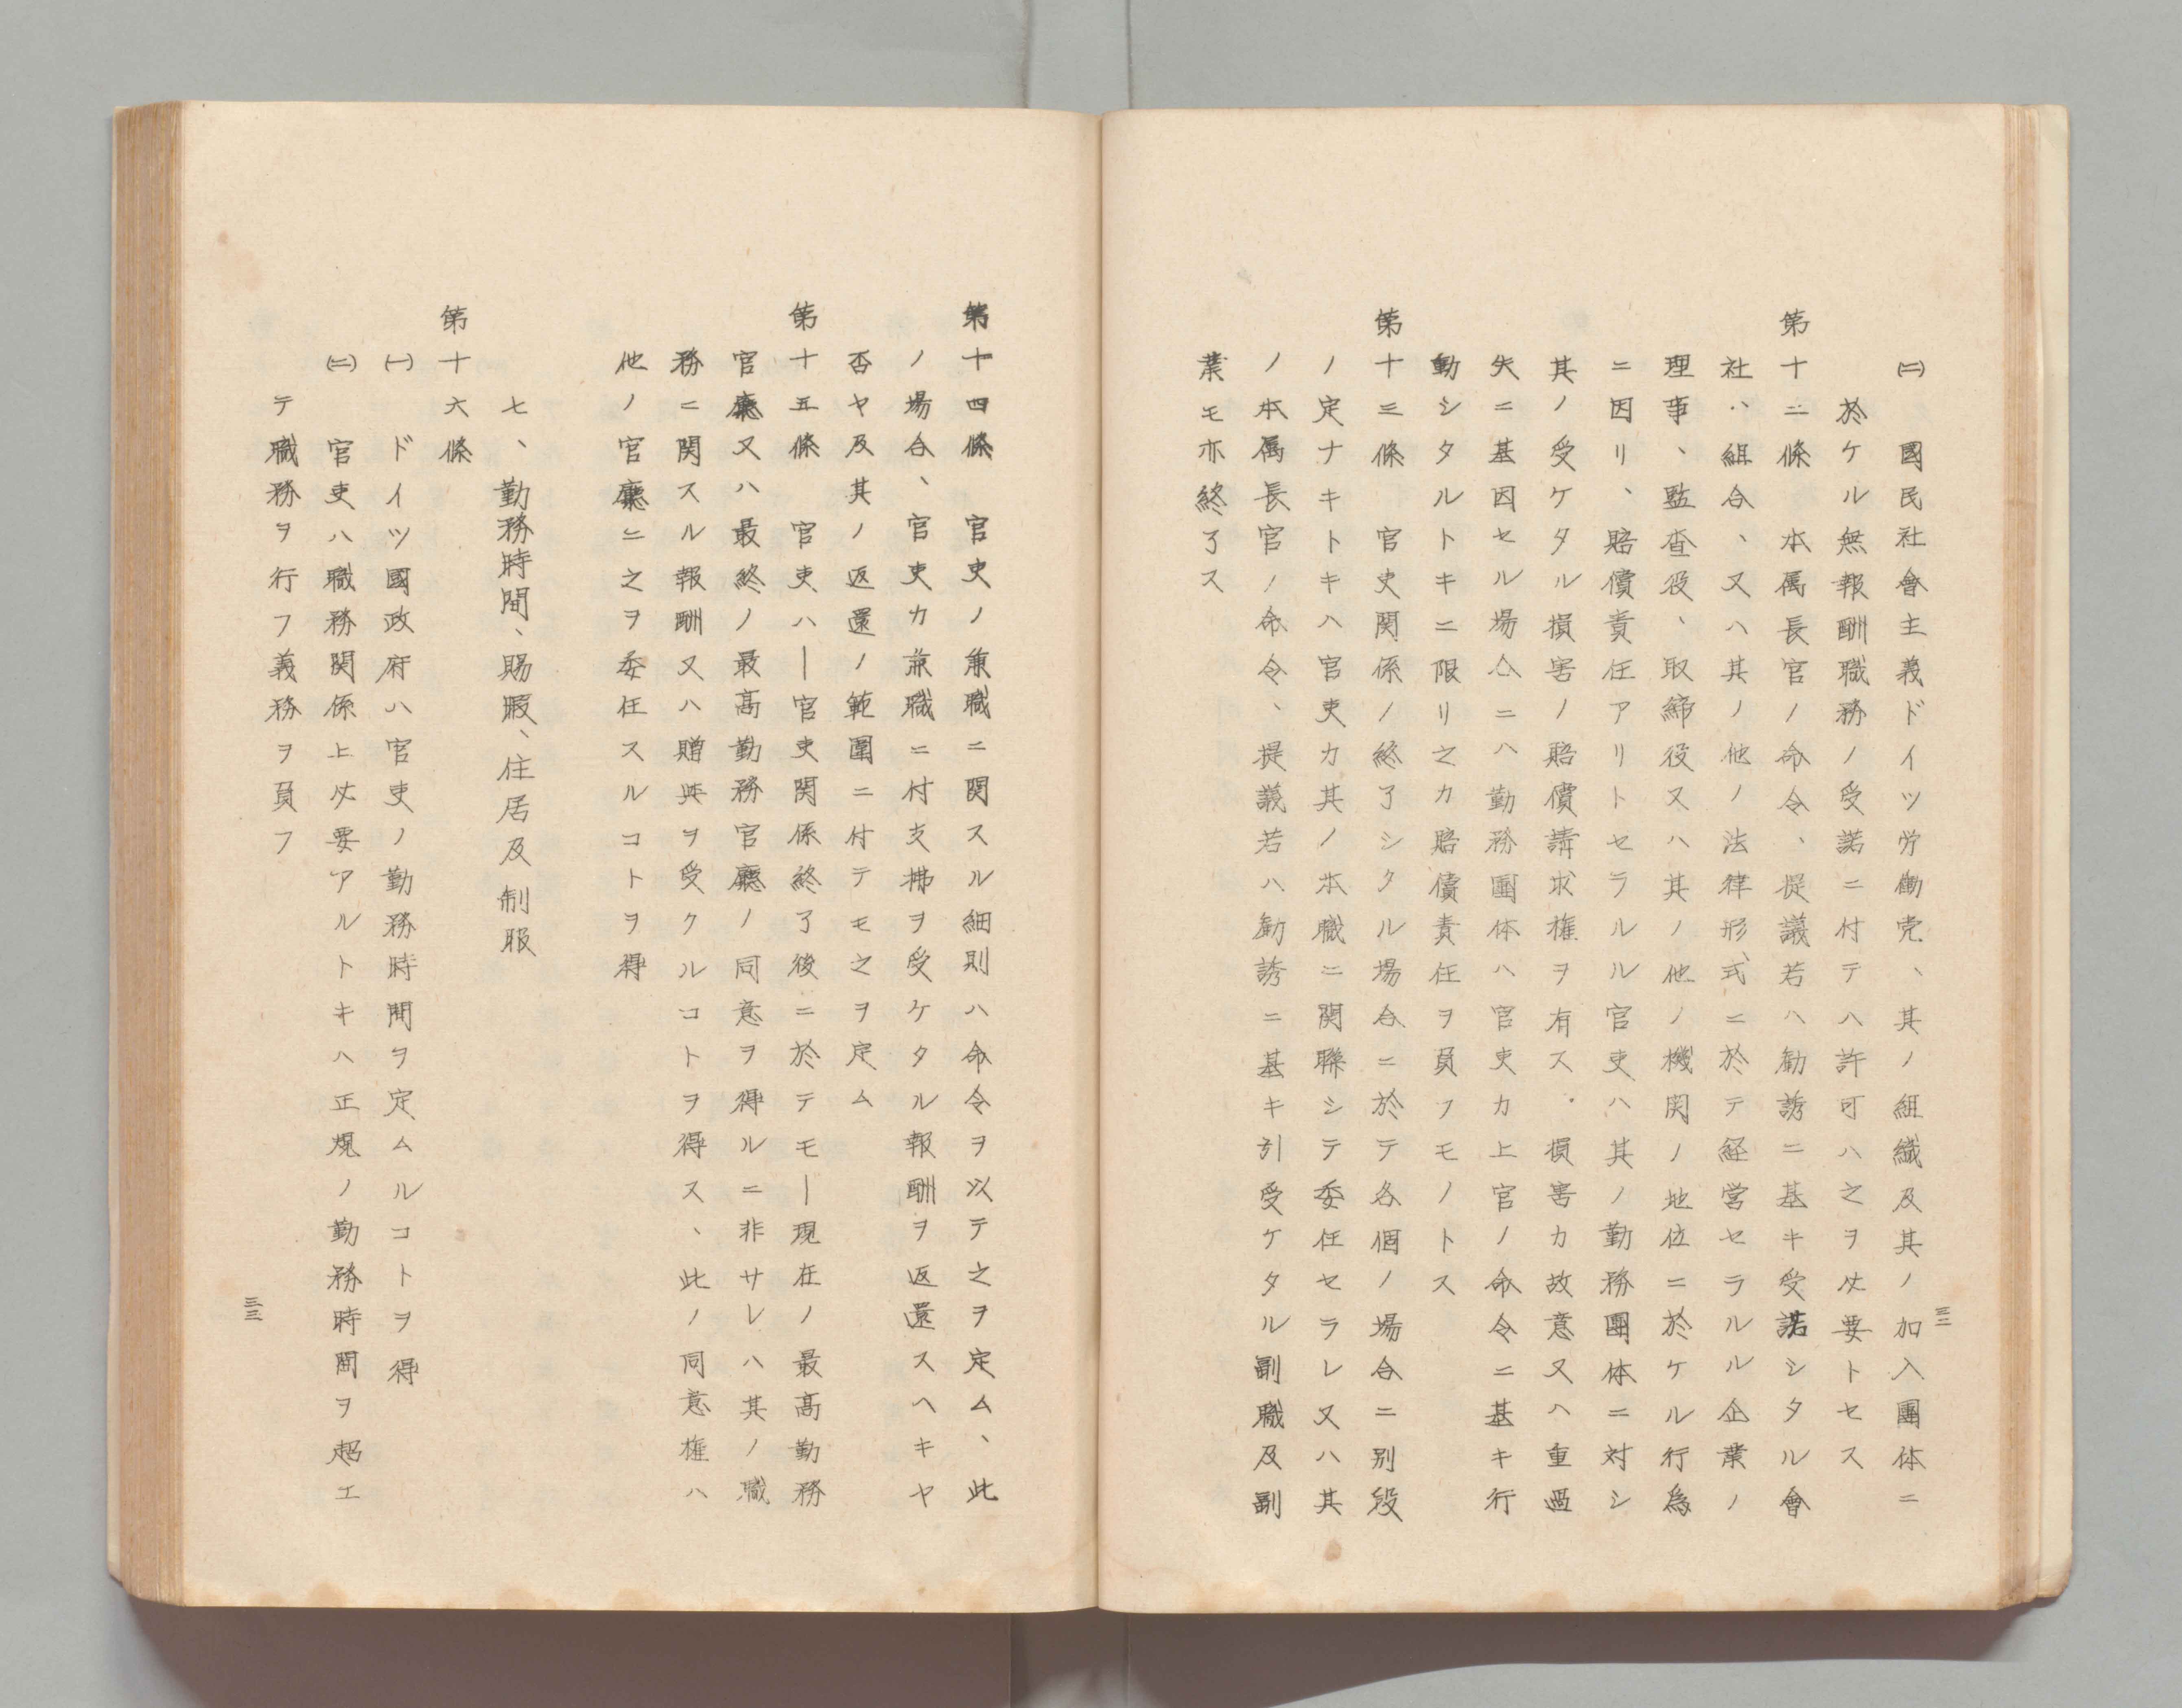 ㈡　國民社會主義ドイツ労働党、其ノ組織及其ノ加入團体ニ
於ケル無報酬職務ノ受諾ニ付テハ許可ハ之ヲ必要トセス
第十二條　本属長官ノ命令、提議若ハ勧誘ニ基キ受諾シタル會
社、組合、又ハ其ノ他ノ法律形式ニ於テ経営セラルル企業ノ
理事、監査役、取締役又ハ其ノ他ノ機関ノ地位ニ於ケル行為
ニ因リ、賠償責任アリトセラルル官吏ハ其ノ勤務團体ニ対シ
其ノ受ケタル損害ノ賠償請求権ヲ有ス．損害カ故意又ハ重過
失ニ基因セル場合ニハ勤務團体ハ官吏カ上官ノ命令ニ基キ行
動シタルトキニ限リ之カ賠償責任ヲ負フモノトス
第十三條　官吏関係ノ終了シタル場合ニ於テ各個ノ場合ニ別段
ノ定ナキトキハ官吏カ其ノ本職ニ関聯シテ委任セラレ又ハ其
ノ本属長官ノ命令、提議若ハ勧誘ニ基キ引受ケタル副職及副
業モ亦終了ス
三二
第十四條　官吏ノ兼職ニ関スル細則ハ命令ヲ以テ之ヲ定ム、此
ノ場合、官吏カ兼職ニ付支拂ヲ受ケタル報酬ヲ返還スヘキヤ
否ヤ及其ノ返還ノ範圍ニ付テモ之ヲ定ム
第十五條　官吏ハ―官吏関係終了後ニ於テモ―現在ノ最高勤務
官廳又ハ最終ノ最高勤務官廳ノ同意ヲ得ルニ非サレハ其ノ職
務ニ関スル報酬又ハ贈與ヲ受クルコトヲ得ス、此ノ同意権ハ
他ノ官廳ニ之ヲ委任スルコトヲ得
七、勤務時間、賜暇、住居及制服
第十六條
㈠　ドイツ國政府ハ官吏ノ勤務時間ヲ定ムルコトヲ得
㈡　官吏ハ職務関係上必要アルトキハ正規ノ勤務時間ヲ超エ
テ職務ヲ行フ義務ヲ負フ
三三